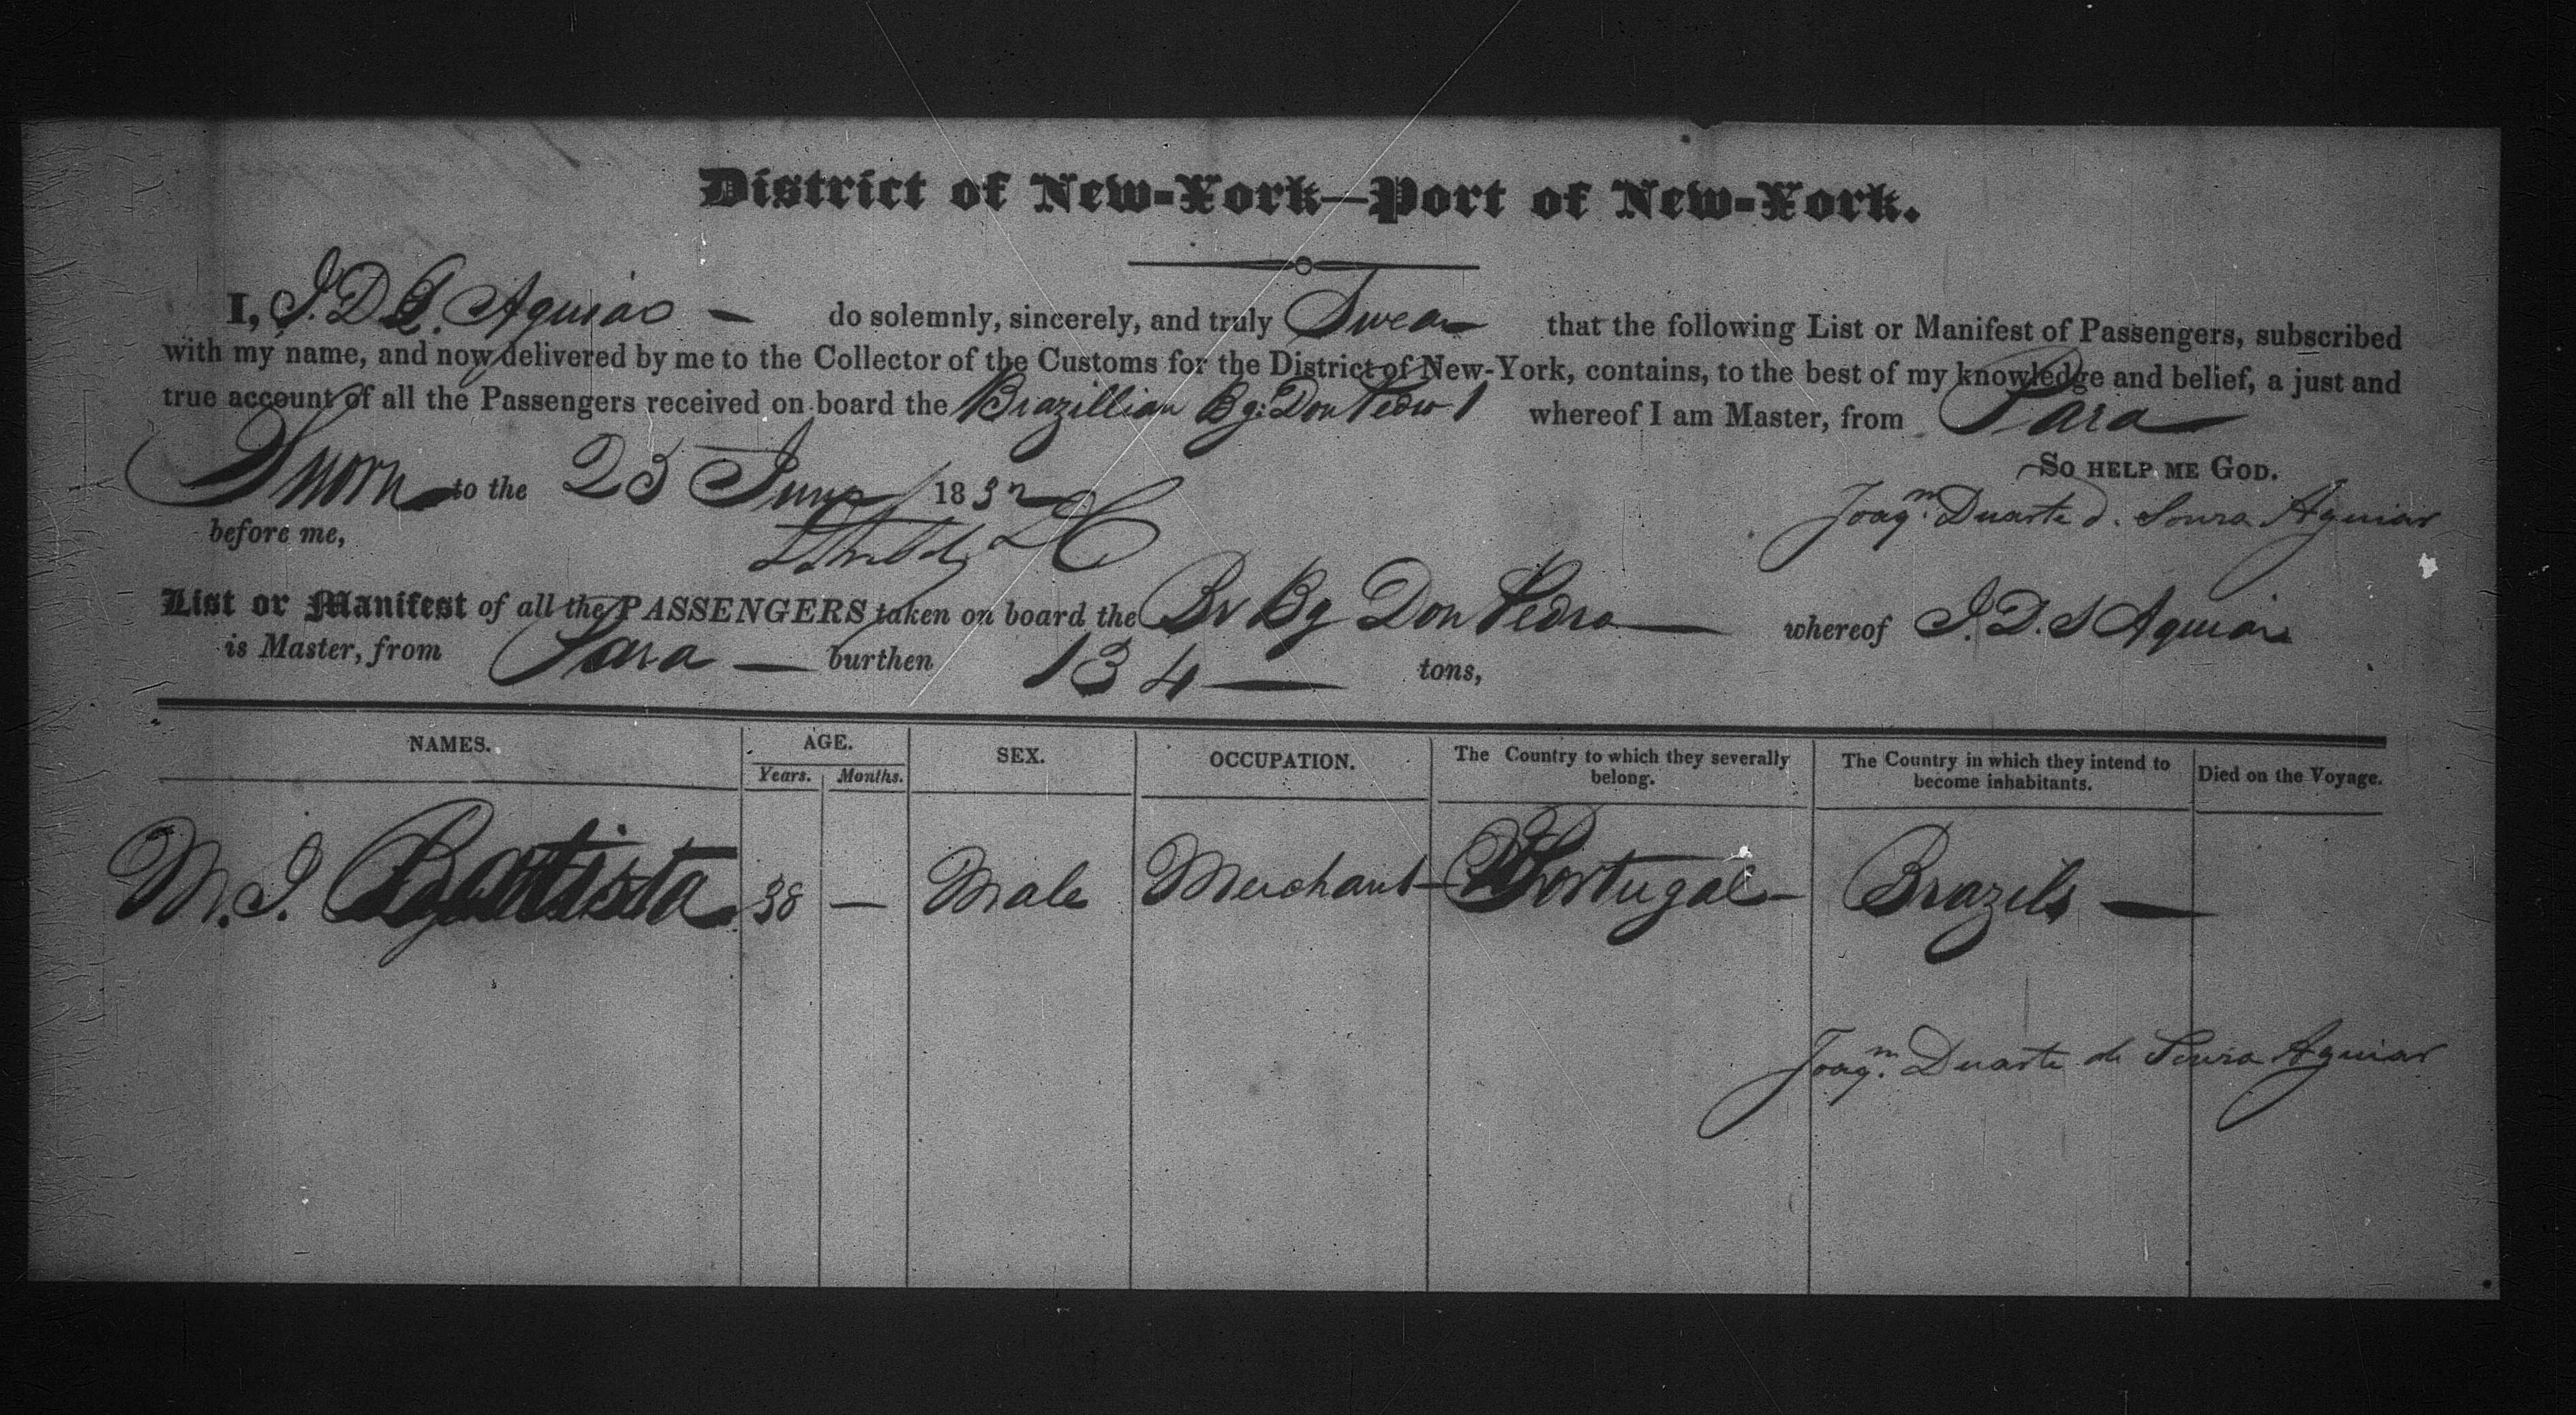 District of New-York—Port of New-York.
I, J. D. S. Aguiar — do solemnly, sincerely, and truly Swear that the following List or Manifest of Passengers, subscribed
with my name, and now delivered by me to the Collector of the Customs for the District of New-York, contains, to the best of my knowledge and belief, a just and
true account of all the Passengers received on board the Brazillian Bg: Don Pedro 1 whereof I am Master, from Para
So help me God.
Sworn to the 23 June 1832
Joaqm. Duarte d. Souza Aguiar
before me,
List or Manifest of all the PASSENGERS taken on board the Br Bg Don Pedro — whereof J. D. S Aguiar
is Master, from Para — burthen 134 — tons,
NAMES. AGE. SEX. OCCUPATION. The Country to which they severally belong. The Country in which they intend to become inhabitants. Died on the Voyage.
Years. Months.
M. J. Baptista 38 — Male Merchant — Portugal — Brazils —
Joaqm. Duarte de Souza Aguiar